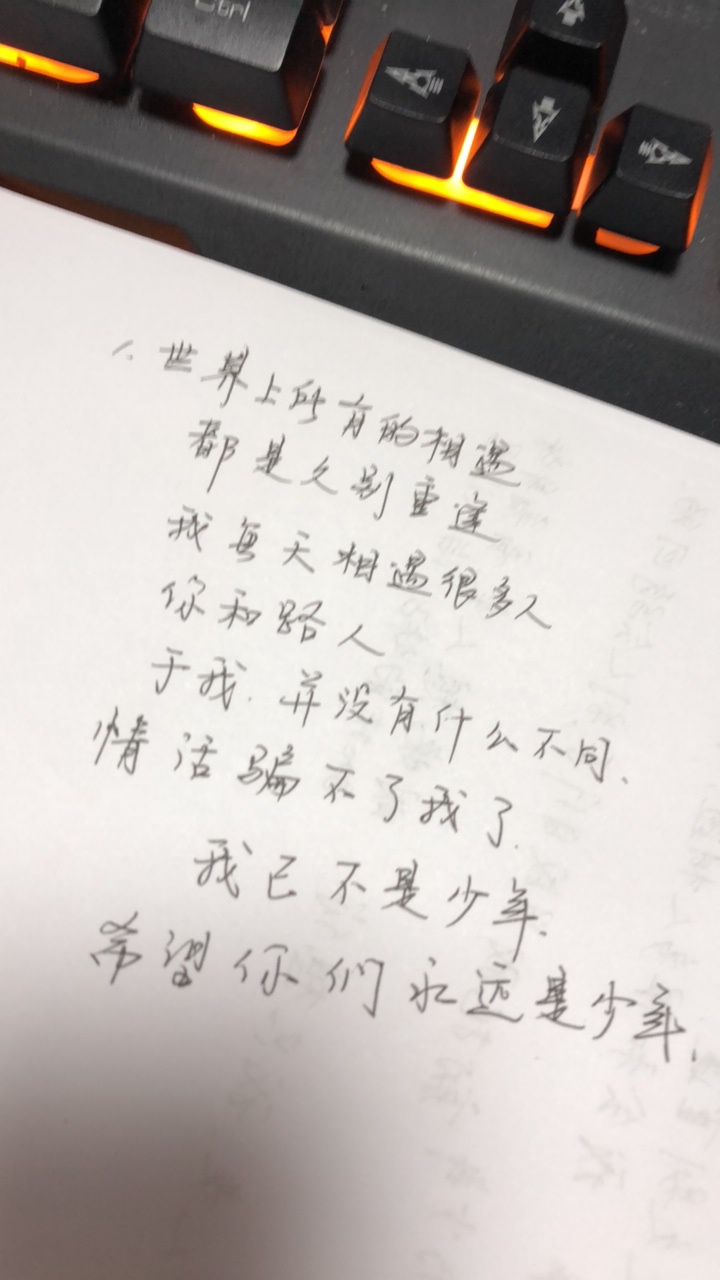 Ctrl
1.世界上所有的相遇
都是久别重逢
我每天相遇很多人
你和路人
于我.并没有什么不同、
情话骗不了我了.
我已不是少年.
希望你们永远是少年.